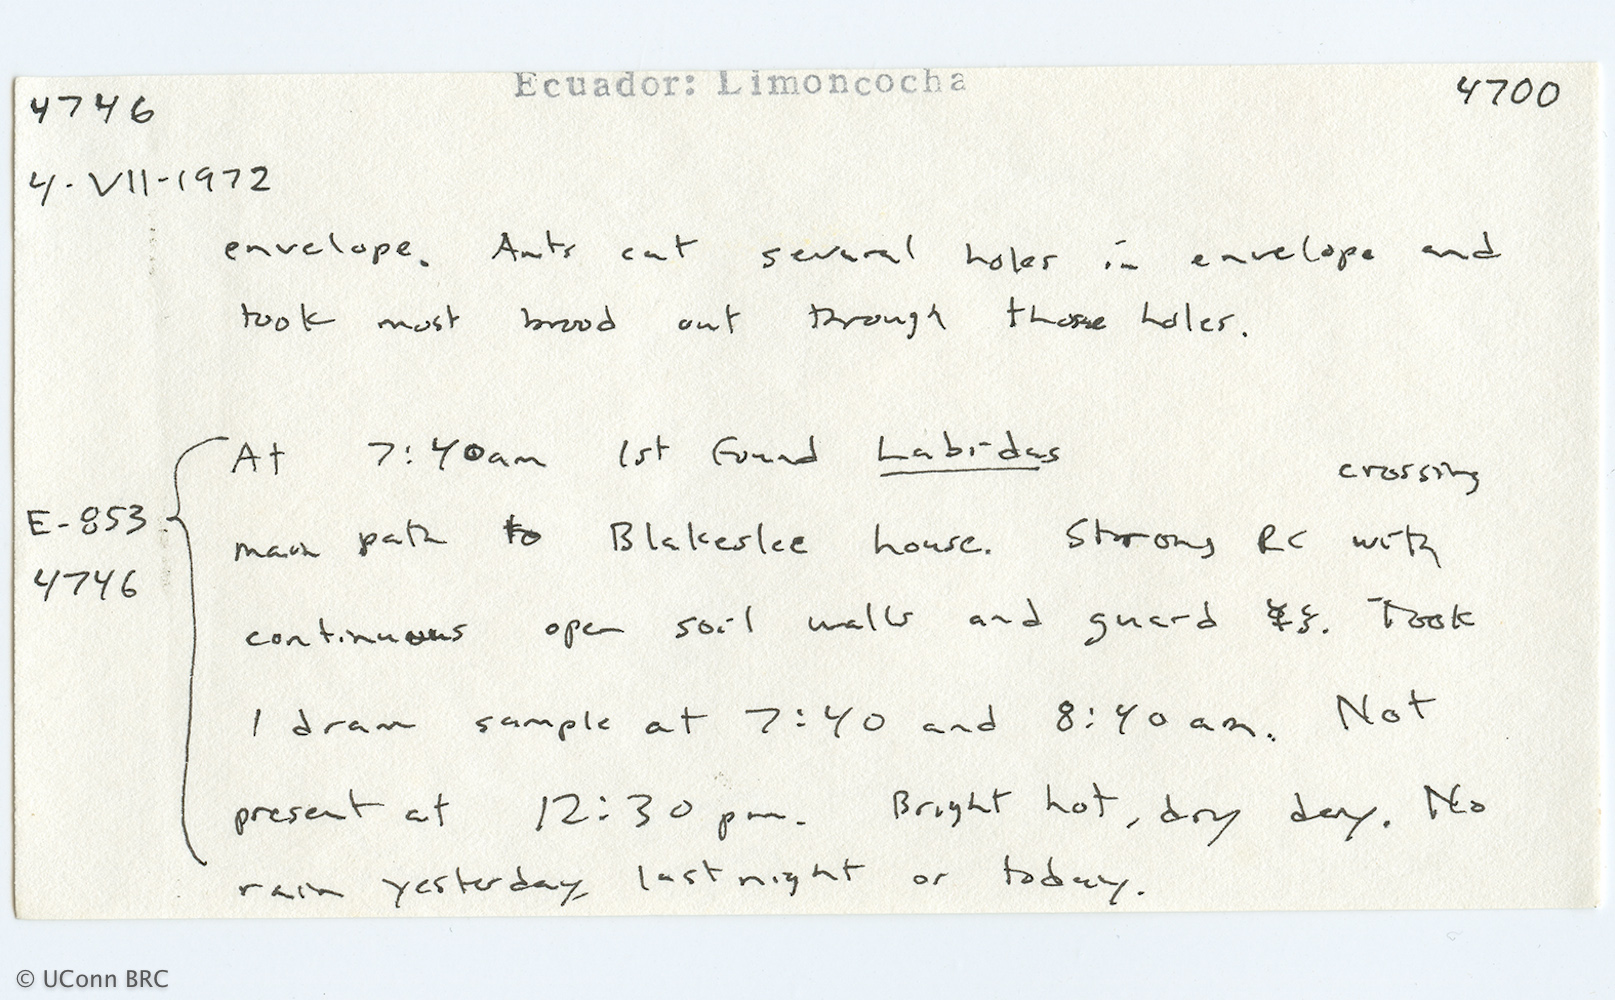 Ecuador: Limoncocha
4746 4700
4-VII-1972
envelope. Ants cut several holes in envelope and
took most brood out through those holes.
At 7:40am 1st found Labidus crossing
E-853 main path to Blakeslee house. Strong RC with
4746
continuous open soil walls and guard Took
1 dram sample at 7:40 and 8:40 am. Not
present at 12:30 pm. Bright hot, dry day. No
rain yesterday, last night or today.
© UConn BRC